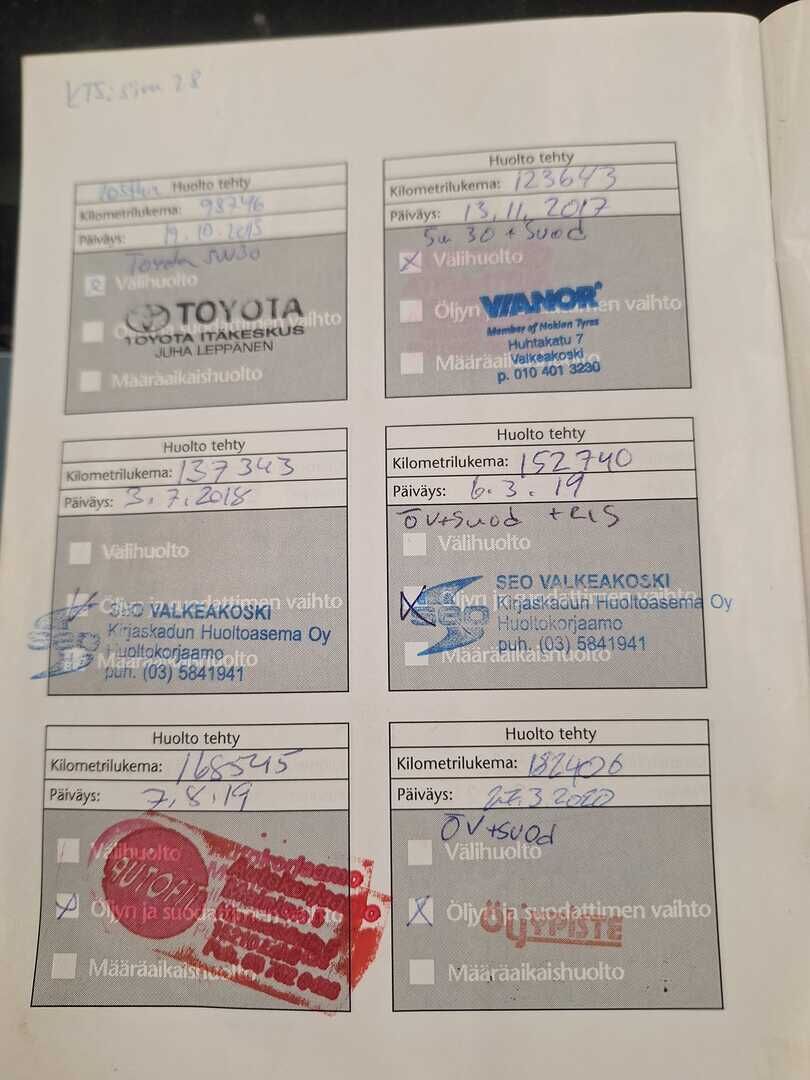 KTS: sivu 28
Huolto tehty
Kilometrilukema: 98746
Päiväys: 19.10.2015
Toyota 5W30
Välihuolto
Öljyn ja suodattimen vaihto
TOYOTA
TOYOTA ITÄKESKUS
JUHA LEPPÄNEN
Määräaikaishuolto
Huolto tehty
Kilometrilukema: 123643
Päiväys: 13.11.2017
5w 30 + Suod
Välihuolto
Öljyn ja suodattimen vaihto
VIANOR
Member of Nokian Tyres
Huhtakatu 7
Valkeakoski
p. 010 401 3230
Määräaikaishuolto
Huolto tehty
Kilometrilukema: 137343
Päiväys: 3.7.2018
Välihuolto
Öljyn ja suodattimen vaihto
SEO VALKEAKOSKI
Kirjaskadun Huoltoasema Oy
Huoltokorjaamo
puh. (03) 5841941
Määräaikaishuolto
Huolto tehty
Kilometrilukema: 152740
Päiväys: 6.3.19
ÖV+suod
Välihuolto
Öljyn ja suodattimen vaihto
SEO
SEO VALKEAKOSKI
Kirjaskadun Huoltoasema Oy
Huoltokorjaamo
puh. (03) 5841941
Määräaikaishuolto
Huolto tehty
Kilometrilukema: 168545
Päiväys: 7.8.19
Välihuolto
Öljyn ja suodattimen vaihto
Määräaikaishuolto
Huolto tehty
Kilometrilukema: 182406
Päiväys: 27.3.2020
ÖV+suod
Välihuolto
Öljyn ja suodattimen vaihto
ÖLJYPISTE
Määräaikaishuolto